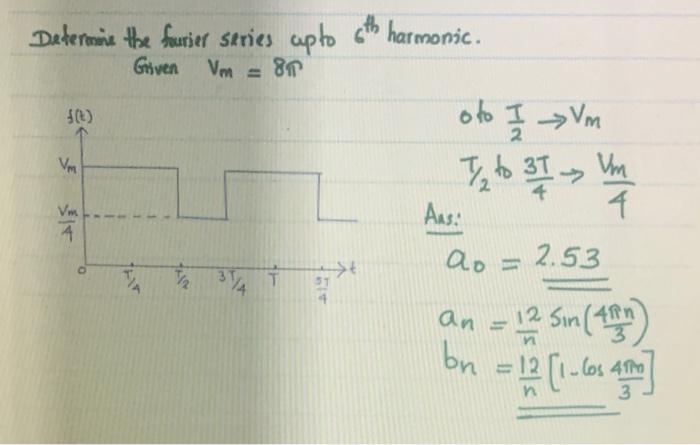 Determine the fourier series upto 6th harmonic.
Given Vm = 8π
f(t)
Vm
Vm/4
0
T/4
T/2
3T/4
T
5T/4
t
0 to T/2 → Vm
T/2 to 3T/4 → Vm/4
Ans:
a0 = 2.53
an = 12/n Sin(4πn/3)
bn = 12/n [1-Cos 4πn/3]